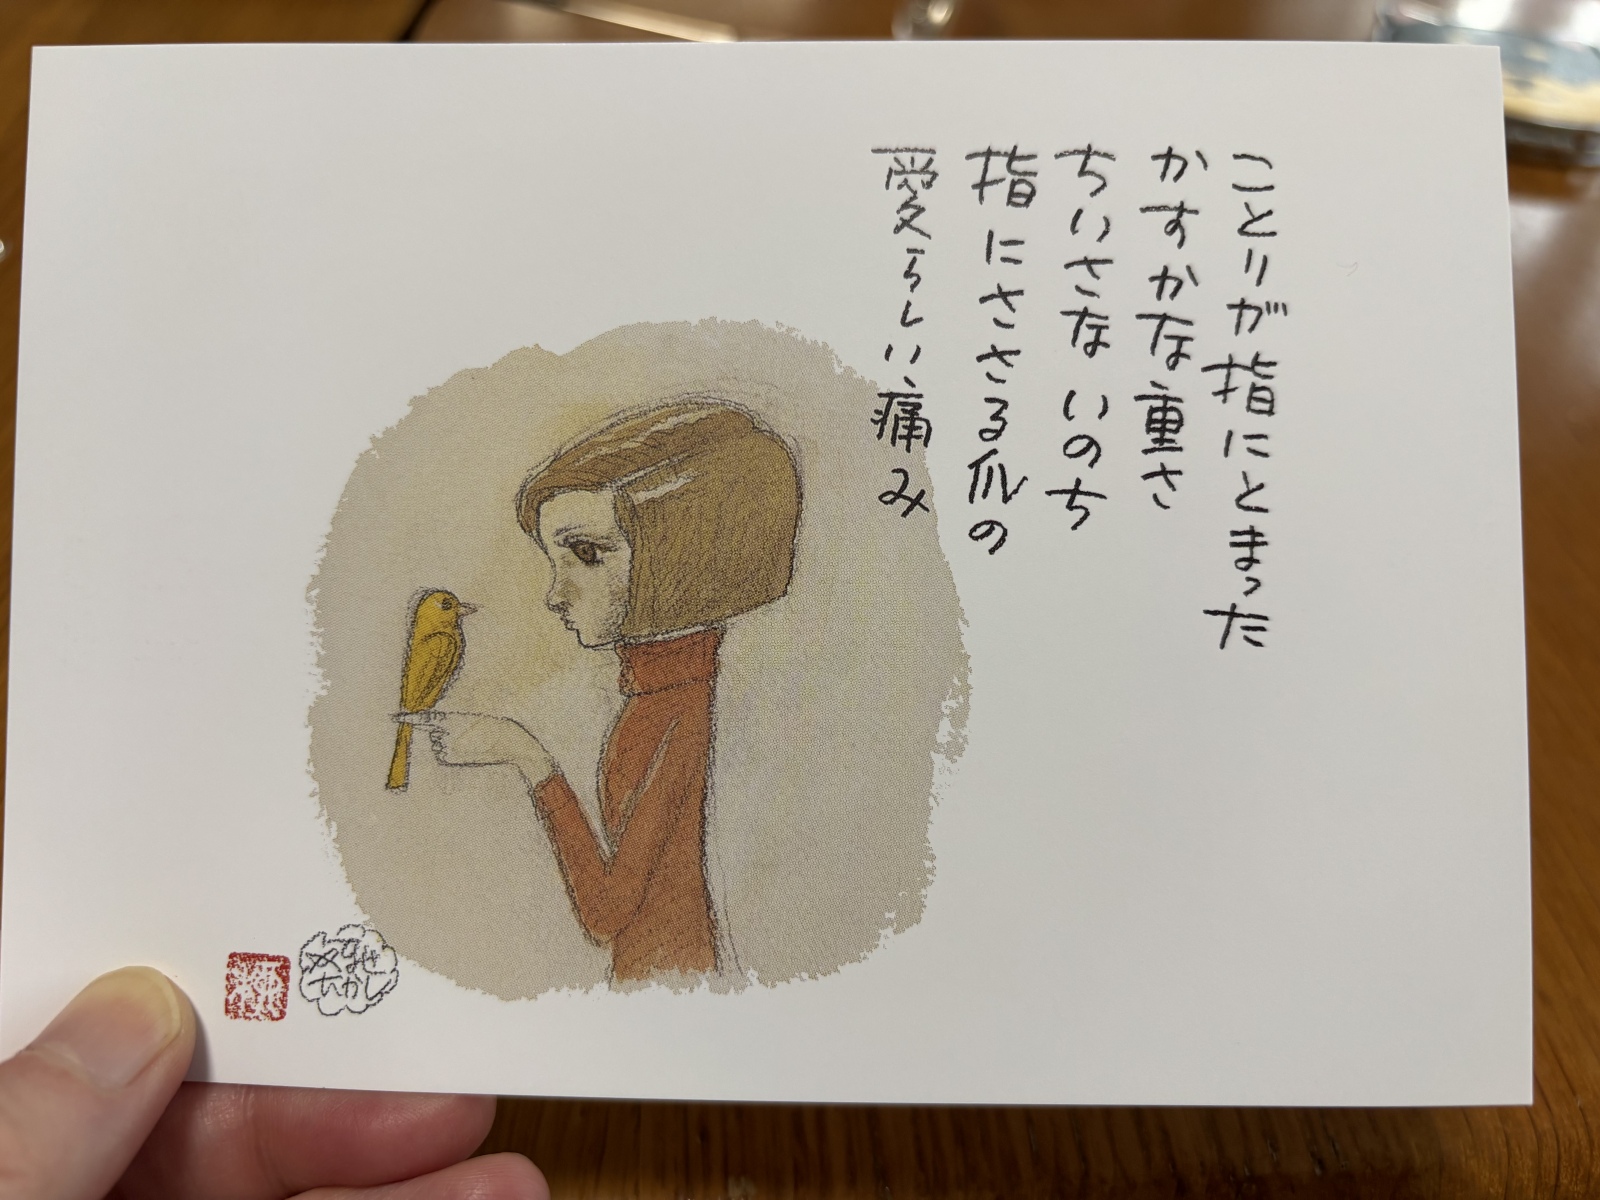 ことりが指にとまった
かすかな重さ
ちいさな いのち
指にささる爪の
愛らしい痛み
やなせ
たかし